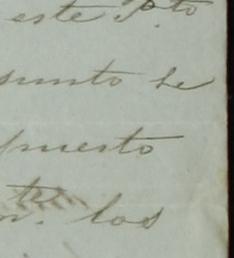 este P.to
sunto he
puesto
los